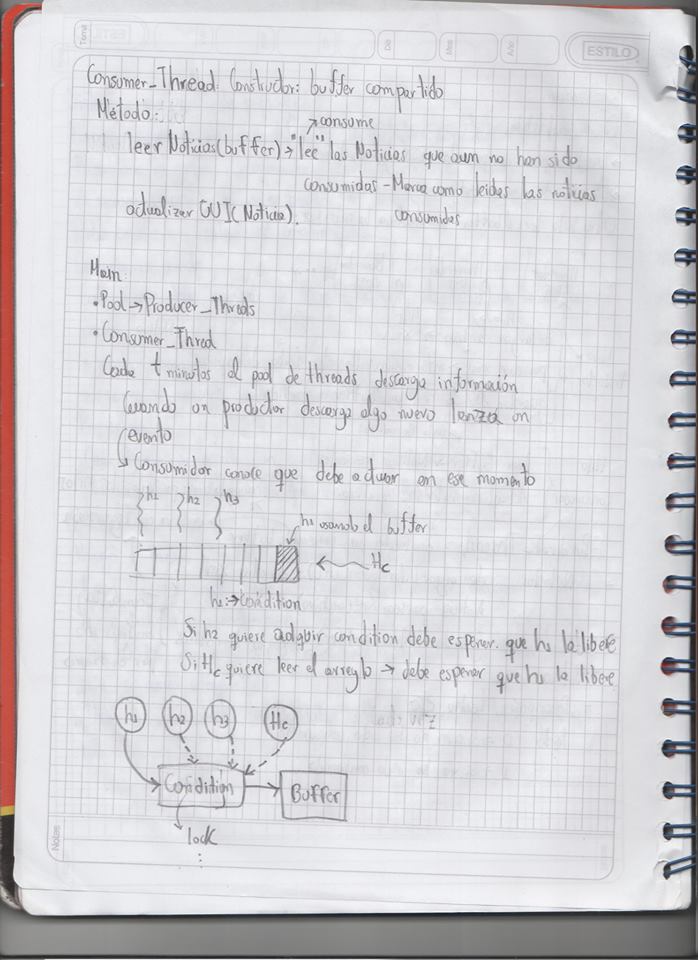 Tema
Día
Mes
Año
ESTILO
Consumer_Thread: Constructor: buffer compartido
Método:
consume
leer Noticias(buffer) → "lee" las Noticias que aum no han sido
consumidas - Marca como leidas las noticias
consumidas
actualizer GUI( Noticia).
Main:
• Pool → Producer_Threds
• Consumer_Thred
Cada t minutos el pool de threads descarga información
Cuando un productor descarga algo nuevo lanza un
evento
Consumidor conoce que debe actuar em ese momento
h1 h2 h3
h1 usando el buffer
Hc
h1 → Condition
Si h2 quiere adquir condition debe esperar que h1 la libere
Si Hc quiere leer el arreglo → debe esperar que h1 la libere
h1 h2 h3 Hc
Condition Buffer
lock
Notas